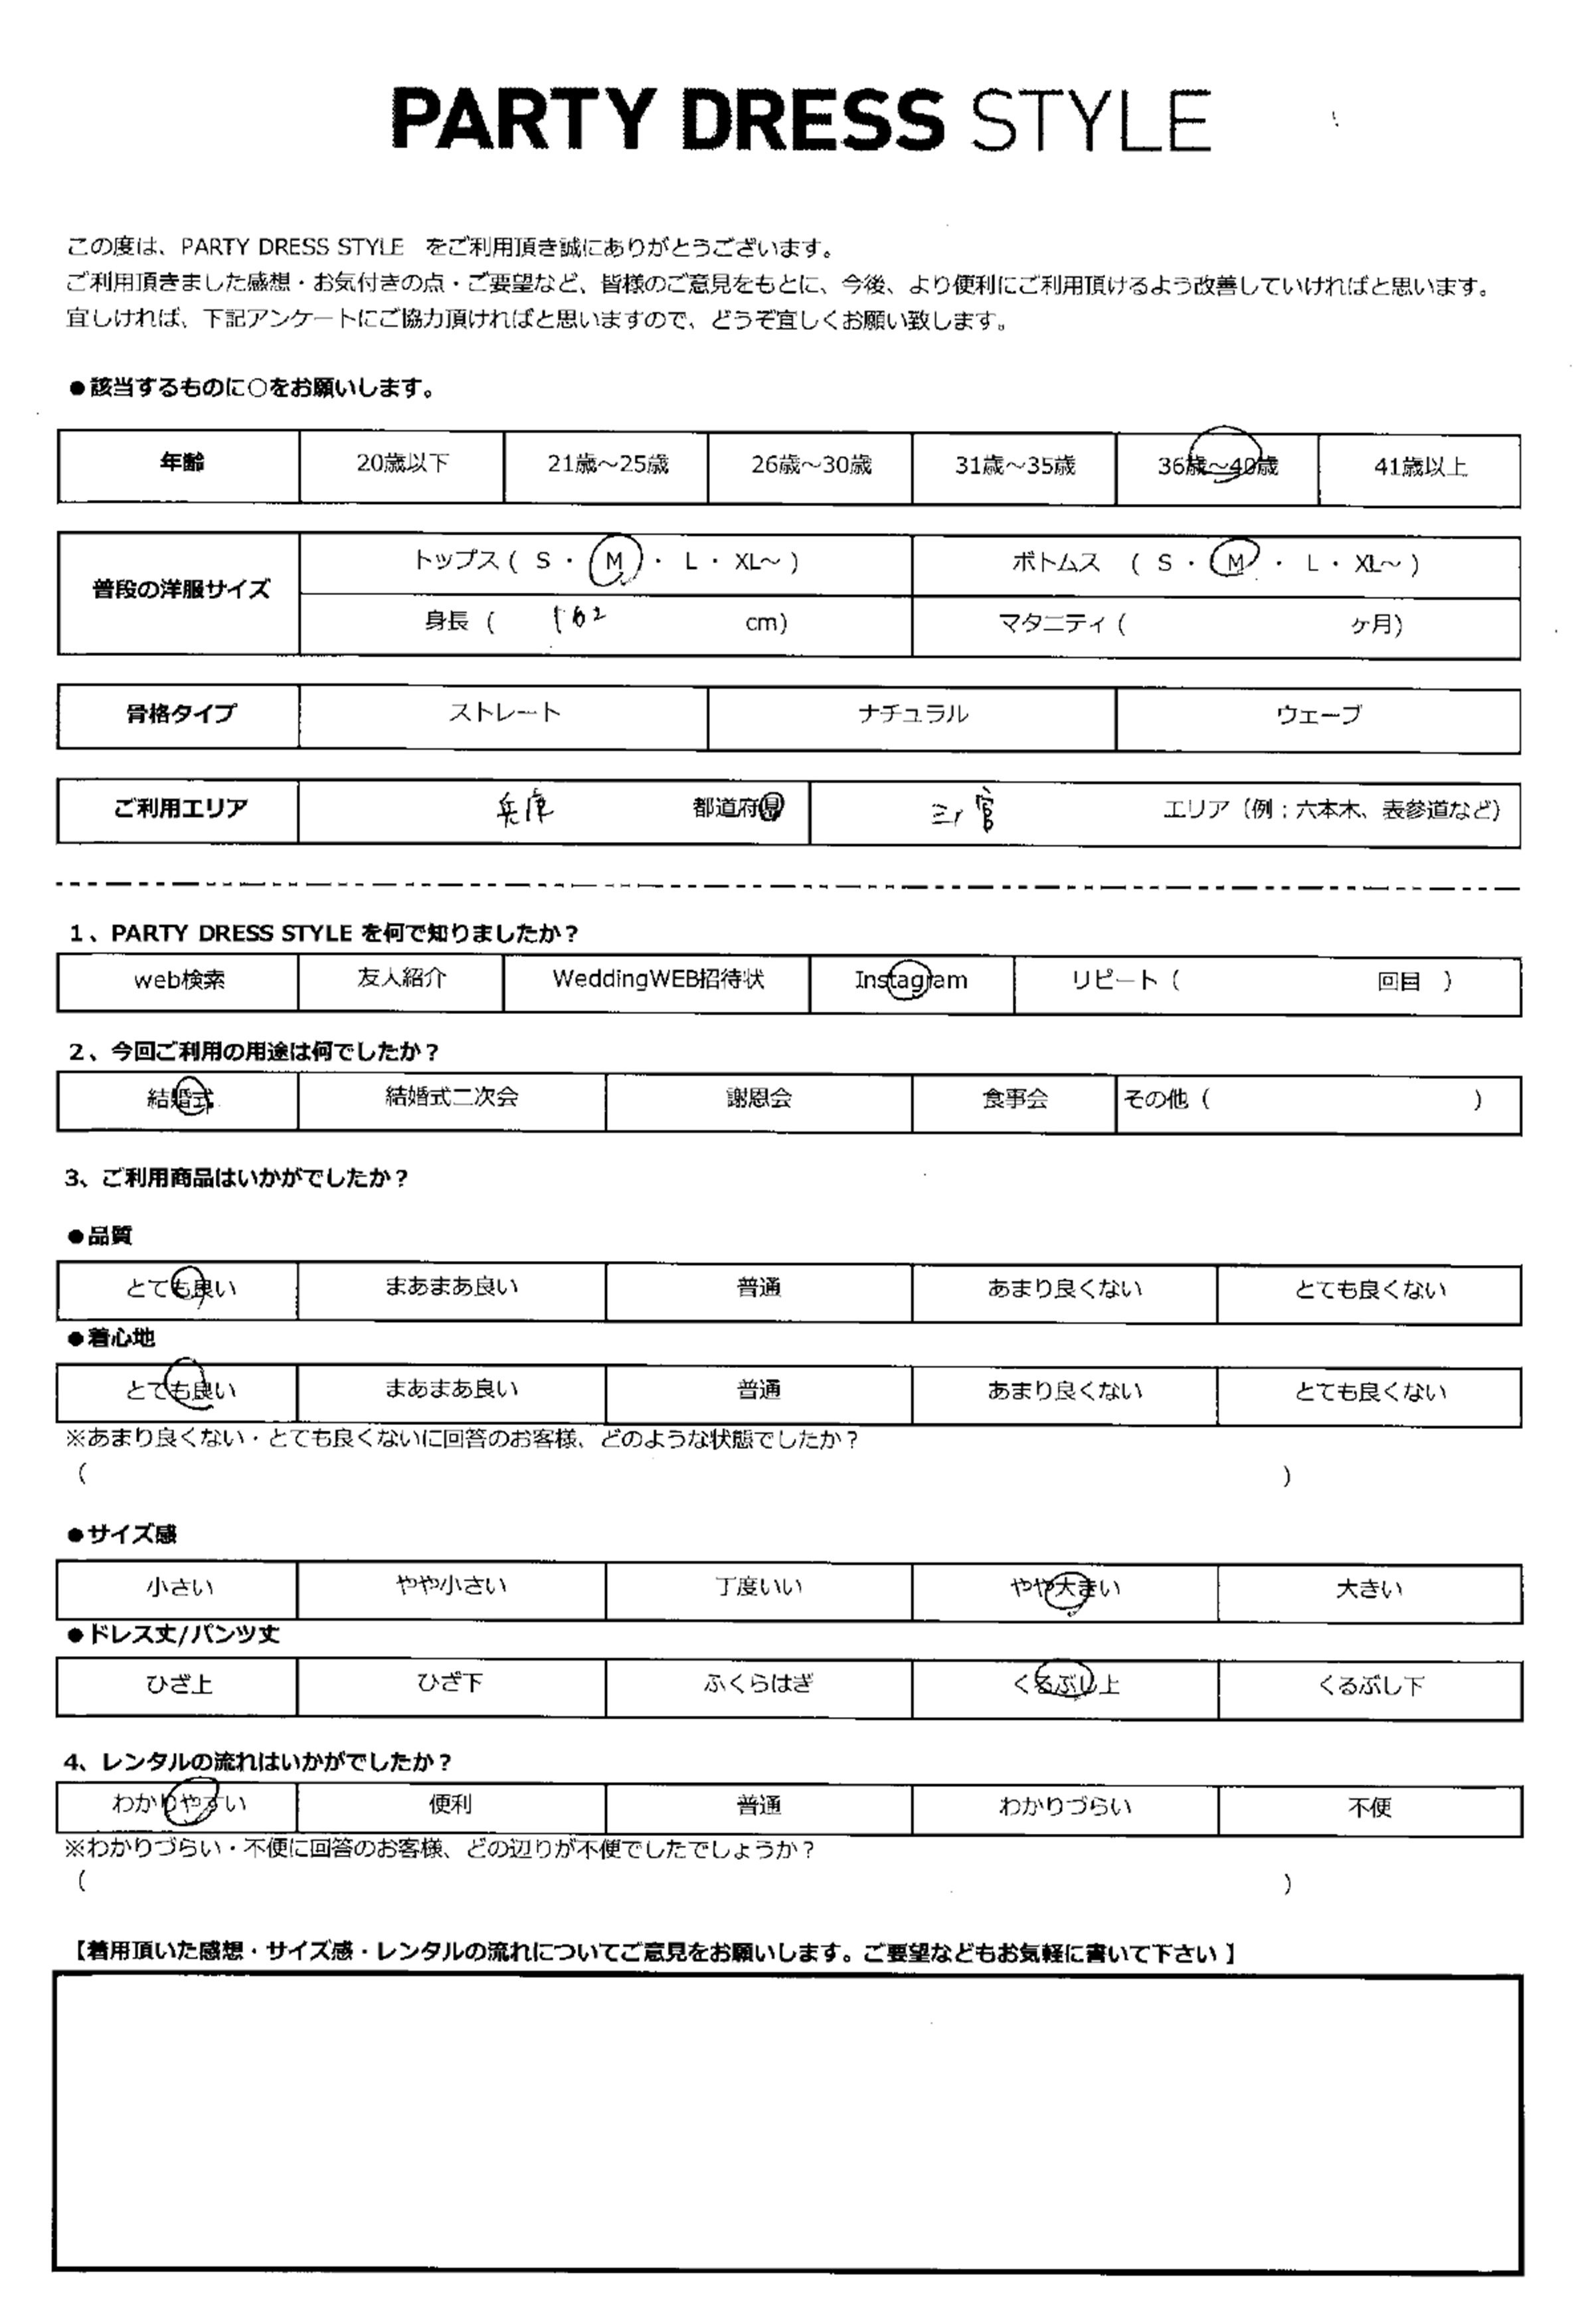 PARTY DRESS STYLE
この度は、PARTY DRESS STYLE をご利用頂き誠にありがとうございます。
ご利用頂きました感想・お気付きの点・ご要望など、皆様のご意見をもとに、今後、より便利にご利用頂けるよう改善していければと思います。
宜しければ、下記アンケートにご協力頂ければと思いますので、どうぞ宜しくお願い致します。
●該当するものに○をお願いします。
年齢 20歳以下 21歳～25歳 26歳～30歳 31歳～35歳 36歳～40歳 41歳以上
普段の洋服サイズ トップス ( S ・ M ・ L ・ XL～ ) ボトムス ( S ・ M ・ L ・ XL～ )
身長 ( 162 cm) マタニティ ( ヶ月)
骨格タイプ ストレート ナチュラル ウェーブ
ご利用エリア 兵庫 都道府県 三ノ宮 エリア（例；六本木、表参道など）
1、PARTY DRESS STYLE を何で知りましたか？
web検索 友人紹介 WeddingWEB招待状 Instagram リピート（ 回目 ）
2、今回ご利用の用途は何でしたか？
結婚式 結婚式二次会 謝恩会 食事会 その他（ ）
3、ご利用商品はいかがでしたか？
●品質
とても良い まあまあ良い 普通 あまり良くない とても良くない
●着心地
とても良い まあまあ良い 普通 あまり良くない とても良くない
※あまり良くない・とても良くないに回答のお客様、どのような状態でしたか？
（ ）
●サイズ感
小さい やや小さい 丁度いい やや大きい 大きい
●ドレス丈/パンツ丈
ひざ上 ひざ下 ふくらはぎ くるぶし上 くるぶし下
4、レンタルの流れはいかがでしたか？
わかりやすい 便利 普通 わかりづらい 不便
※わかりづらい・不便に回答のお客様、どの辺りが不便でしたでしょうか？
（ ）
【着用頂いた感想・サイズ感・レンタルの流れについてご意見をお願いします。ご要望などもお気軽に書いて下さい 】